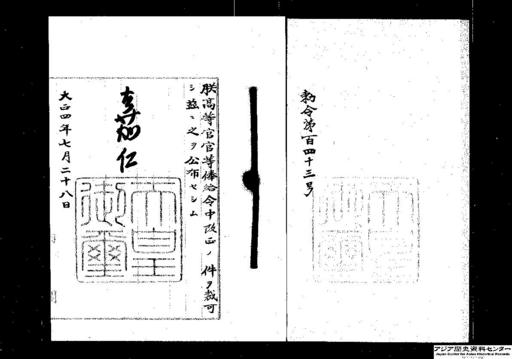 勅令第百四十三号
朕高等官官等俸給令中改正ノ件ヲ裁可
シ茲ニ之ヲ公布セシム
嘉仁
天皇御璽
大正四年七月二十八日
アジア歴史資料センター
Japan Center for Asian Historical Records